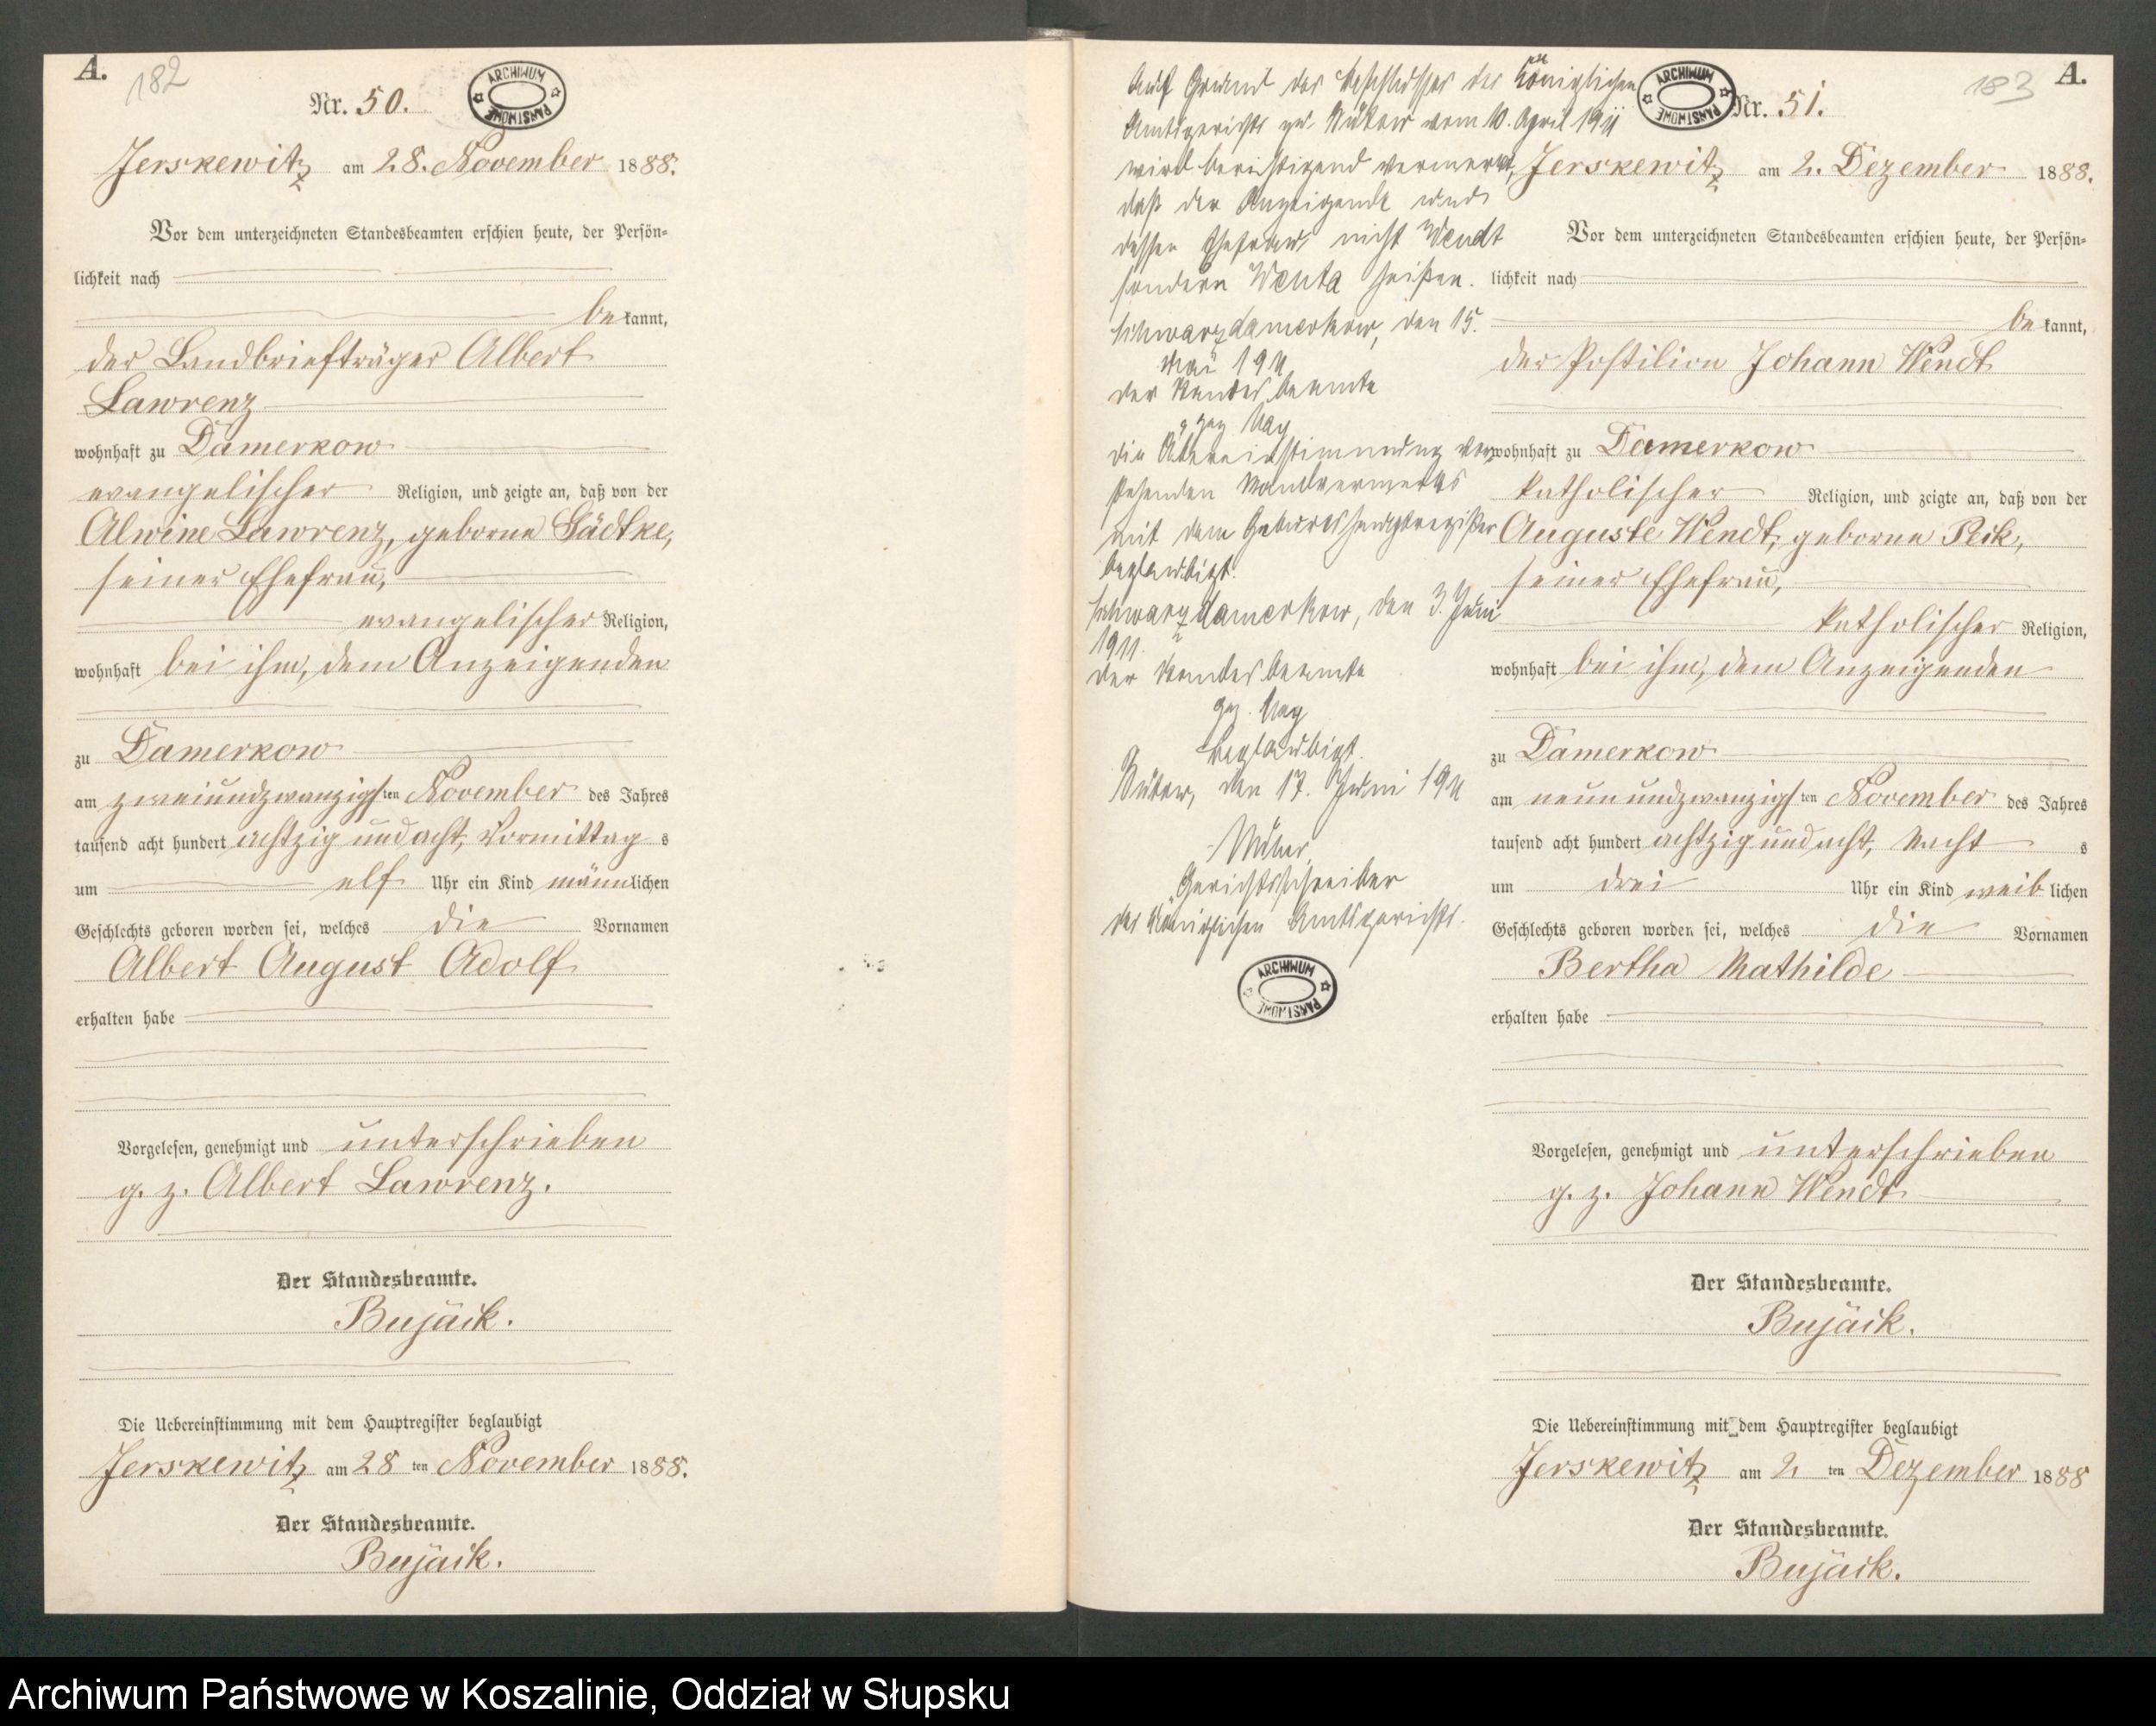 A.
182
Nr. 50.
ARCHIWUM PAŃSTWOWE
Jerskewitz am 28. November 1888.
Vor dem unterzeichneten Standesbeamten erschien heute, der Persön-
lichkeit nach
be kannt,
der Landbriefträger Albert
Lawrenz
wohnhaft zu Damerkow
evangelischer Religion, und zeigte an, daß von der
Alwine Lawrenz, geborne Gädtke,
seiner Ehefrau,
evangelischer Religion,
wohnhaft bei ihm, dem Anzeigenden
zu Damerkow
am zweiundzwanzigsten November des Jahres
tausend acht hundert achtzig und acht, Vormittag s
um elf Uhr ein Kind männlichen
Geschlechts geboren worden sei, welches die Vornamen
Albert August Adolf
erhalten habe
Vorgelesen, genehmigt und unterschrieben
g. z. Albert Lawrenz.
Der Standesbeamte.
Bujack.
Die Uebereinstimmung mit dem Hauptregister beglaubigt
Jerskewitz am 28 ten November 1888.
Der Standesbeamte.
Bujack.
Auf Grund des Beschlusses des Königlichen
Amtsgerichts zu Bütow vom 10. April 1911
wird berichtigend vermerkt,
daß der Anzeigende und
dessen Ehefrau nicht Wendt
sondern Wenta heißen.
Schwarzdamerkow, den 15.
Mai 1911
Der Standesbeamte
gez.
Die Übereinstimmung vor-
stehenden Randvermerks
mit dem Geburtshauptregister
beglaubigt.
Schwarzdamerkow, den 3. Juni
1911.
Der Standesbeamte
gez.
Beglaubigt.
Bütow, den 17. Juni 1911
Gerichtsschreiber
des Königlichen Amtsgerichts.
ARCHIWUM PAŃSTWOWE
183
A.
ARCHIWUM PAŃSTWOWE
Nr. 51.
Jerskewitz am 2. Dezember 1888.
Vor dem unterzeichneten Standesbeamten erschien heute, der Persön-
lichkeit nach
be kannt,
der Postilion Johann Wendt
wohnhaft zu Damerkow
katholischer Religion, und zeigte an, daß von der
Auguste Wendt, geborne Peik,
seiner Ehefrau,
katholischer Religion,
wohnhaft bei ihm, dem Anzeigenden
zu Damerkow
am neunundzwanzigsten November des Jahres
tausend acht hundert achtzig und acht, Nacht s
um drei Uhr ein Kind weib lichen
Geschlechts geboren worden sei, welches die Vornamen
Bertha Mathilde
erhalten habe
Vorgelesen, genehmigt und unterschrieben
g. z. Johann Wendt
Der Standesbeamte.
Bujack.
Die Uebereinstimmung mit dem Hauptregister beglaubigt
Jerskewitz am 2 ten Dezember 1888
Der Standesbeamte.
Bujack.
Archiwum Państwowe w Koszalinie, Oddział w Słupsku